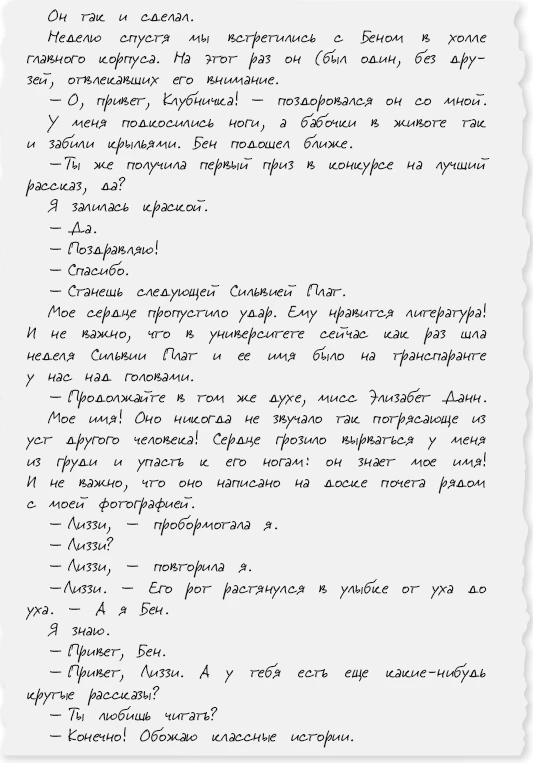 Он так и сделал.
Неделю спустя мы встретились с Беном в холле
главного корпуса. На этот раз он (был один, без дру-
зей, отвлекавших его внимание.
— О, привет, Клубничка! — поздоровался он со мной.
У меня подкосились ноги, а бабочки в животе так
и забили крыльями. Бен подошел ближе.
—Ты же получила первый приз в конкурсе на лучший
рассказ, да?
Я залилась краской.
— Да.
— Поздравляю!
— Спасибо.
— Станешь следующей Сильвией Плат.
Мое сердце пропустило удар. Ему нравится литература!
И не важно, что в университете сейчас как раз шла
неделя Сильвии Плат и ее имя было на транспаранте
у нас над головами.
— Продолжайте в том же духе, мисс Элизабет Данн.
Мое имя! Оно никогда не звучало так потрясающе из
уст другого человека! Сердце грозило вырваться у меня
из груди и упасть к его ногам: он знает мое имя!
И не важно, что оно написано на доске почета рядом
с моей фотографией.
— Лиззи, — пробормотала я.
— Лиззи?
— Лиззи, — повторила я.
—Лиззи. — Его рот растянулся в улыбке от уха до
уха. — А я Бен.
Я знаю.
— Привет, Бен.
— Привет, Лиззи. А у тебя есть еще какие-нибудь
крутые рассказы?
— Ты любишь читать?
— Конечно! Обожаю классные истории.